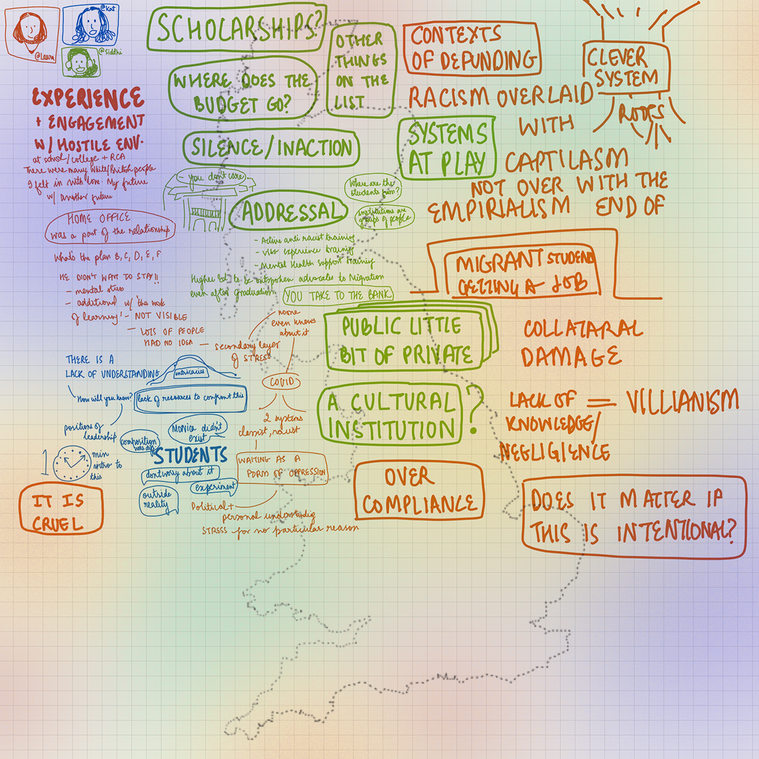 @Laura
@Kat
@Siddhi
SCHOLARSHIPS?
OTHER
THINGS
ON THE
LIST
WHERE DOES THE
BUDGET GO?
SILENCE/INACTION
CONTEXTS
OF DEFUNDING
CLEVER
SYSTEM
ROOTS
RACISM OVERLAID
WITH
CAPTILASM
SYSTEMS
AT PLAY
NOT OVER WITH THE
EMPIRIALISM END OF
EXPERIENCE
+ ENGAGEMENT
W/ HOSTILE ENV.
at school/college + RCA
There were many white/British people
I felt in with love My future
w/ another future
HOME OFFICE
was a part of the relationship
Whats the plan B, C, D, E, F
WE DIDN'T WANT TO STAY!!
- mental stress
- additional w/ the work
of learning!
- NOT VISIBLE
- LOTS OF PEOPLE
HAD NO IDEA
You don't care
Where are the
students from?
institutions are
groups of people
ADDRESSAL
- Active anti racist training
- visa experience training
- Mental Health support training
Higher Ed to be outspoken advocates to Migration
even after graduation
YOU TAKE TO THE BANK
noone
even knows
about it
secondary layer
of STRESS
MIGRANT STUDENT
GETTING A JOB
PUBLIC LITTLE
BIT OF PRIVATE
COLLATARAL
DAMAGE
THERE IS A
LACK OF UNDERSTANDING
intricacies
How will you know?
lack of resources to confront this
COVID
2 systems
classist, racist
A CULTURAL
INSTITUTION
?
LACK OF
KNOWLEDGE/
NEGLIGIENCE
= VILLIANISM
positions of
leadership
Monica didn't
exist
STUDENTS
dont worry about it
experiment
outside
reality
1 min
intro to
this
WAITING AS A
FORM OF OPPRESSION
Political +
personal understanding
STRESS for no particular reason
IT IS
CRUEL
OVER
COMPLIANCE
DOES IT MATTER IF
THIS IS INTENTIONAL?